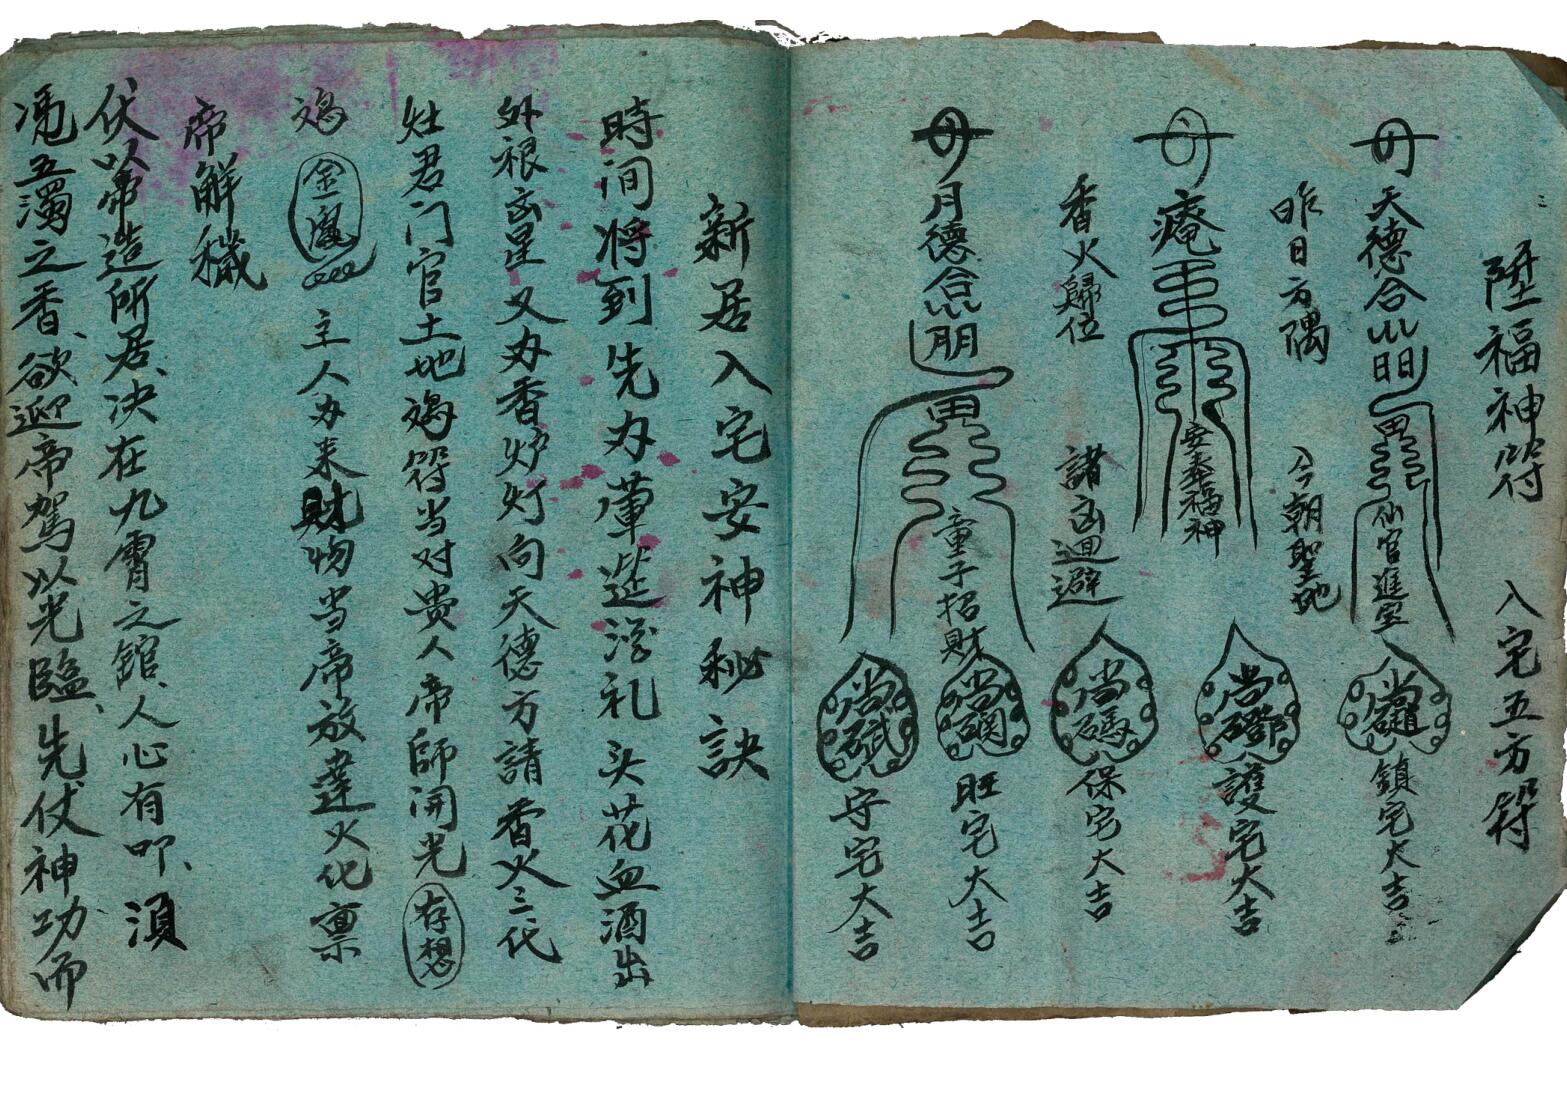 陞福神符 入宅五方符
天德合 仙官進宝
鎮宅大吉
昨日方隅 今朝聖
護宅大吉
安奉福神
香火歸位 諸凶迴避
保宅大吉
月德合 童子招財
旺宅大吉
守宅大吉
新居入宅安神秘訣
時间将到先办葷筵浮礼头花血酒出
外根凶星又办香炉灯向天德方請香火三代
灶君门官土地 符当对贵人帝師開光 存想
金鳳 主人办来財物当帝放達火化禀
帝解穢
伏以帝造所居、决在九霄之舘、人心有叩、須
凴五濁之香、欲迎帝驾以光臨、先仗神功而